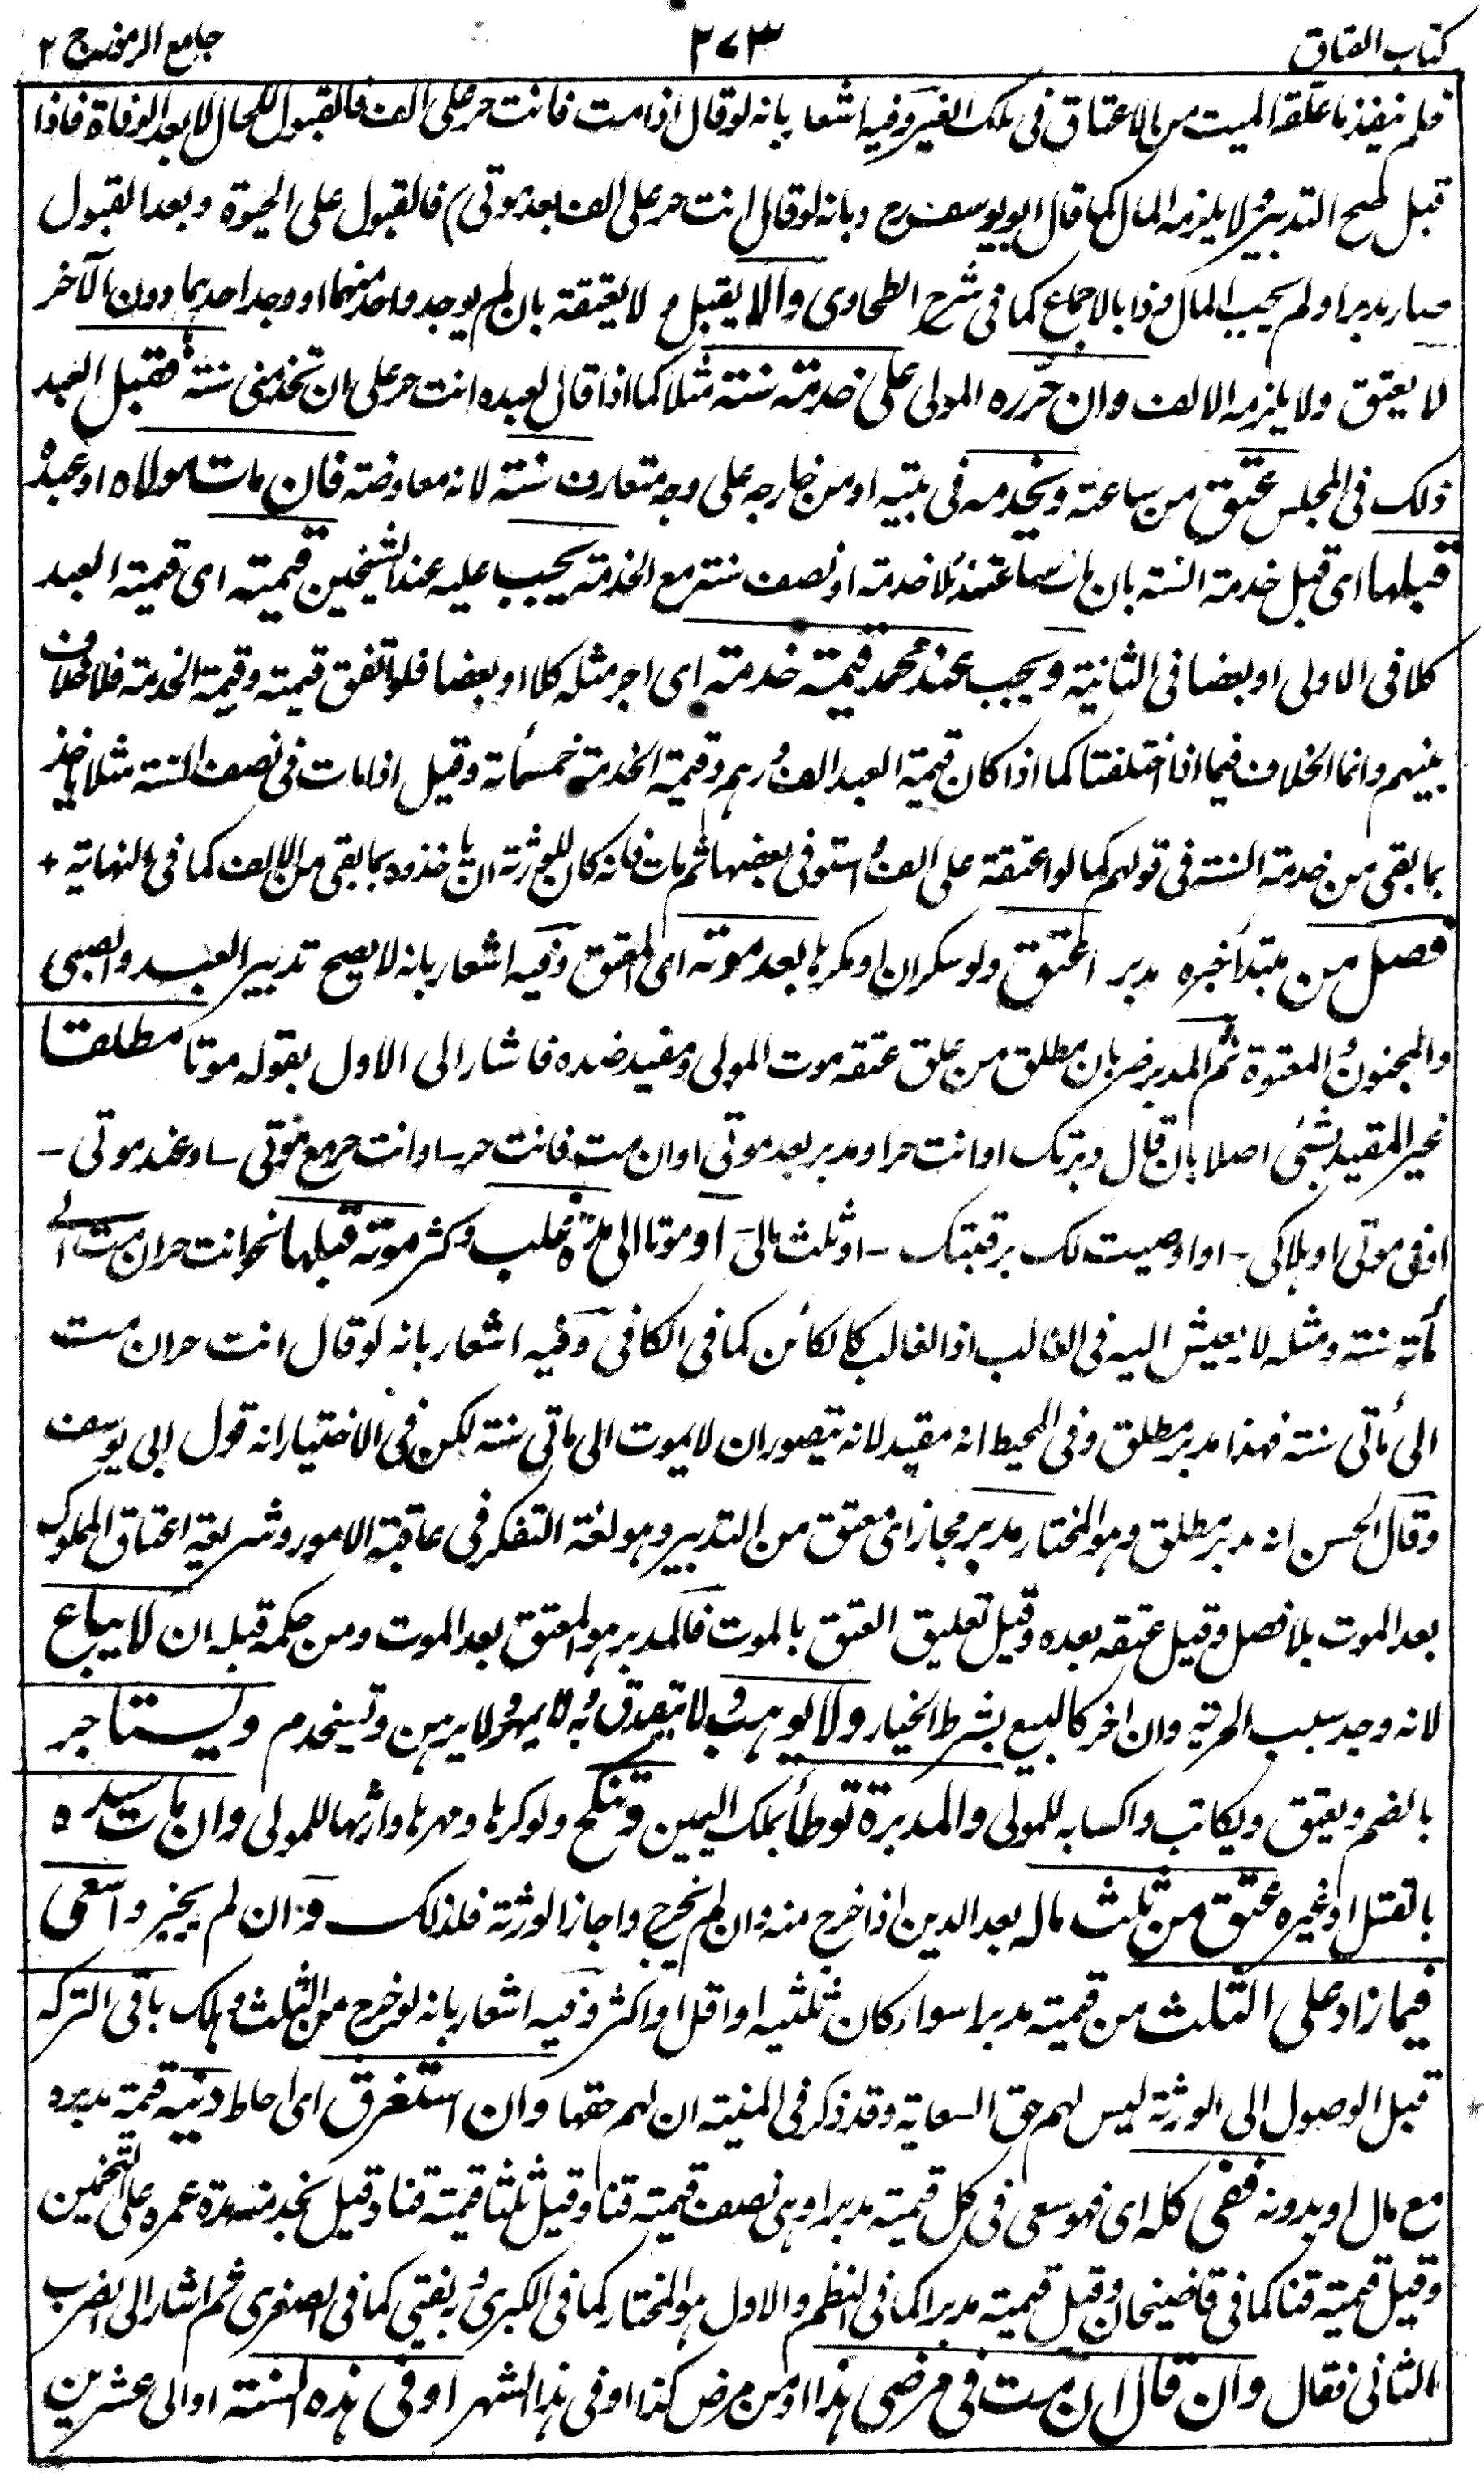 كتاب العتاق ٢٧٣ جامع الرموز ج ٢
فلم ينفذ ما علقه الميت من الاعتاق فى ملك الغير وفيه اشعار بانه لو قال اذا مت فانت حر على الف فالقبول للحال لا بعد الوفاة فاذا
قبل صح التدبير ولا يلزمه المال كما قال ابو يوسف رح وبانه لو قال انت حر على الف بعد موتى فالقبول على الحيوة وبعد القبول
صار مدبرا ولم يجب المال وذا بالاجماع كما فى شرح الطحاوى والا يقبل و لا يعتقه بان لم يوجد واحد منهما او وجد احدهما دون الآخر
لا يعتق ولا يلزمه الالف وان حرره المولى على خدمته سنة مثلا كما اذا قال لعبده انت حر على ان تخدمنى سنة فقبل العبد
ذلك فى المجلس عتق من ساعته ويخدمه فى بيته او من خارجه على وجه متعارف سنة لانه معاوضة فان مات مولاه او عبده
قبلها اى قبل خدمة السنة بان مات ساعتئذ بلا خدمة او نصف سنة مع الخدمة يجب عليه عند الشيخين قيمته اى قيمة العبد
كلا فى الاولى او بعضا فى الثانية ويجب عند محمد قيمة خدمته اى اجر مثله كلا او بعضا فلو اتفق قيمته وقيمة الخدمة فلا خلاف
بينهم وانما الخلاف فيما اذا اختلفتا كما اذا كان قيمة العبد الف درهم وقيمة الخدمة خمسمائة وقيل اذا مات فى نصف السنة مثلا ياخذ
بما بقى من خدمة السنة فى قولهم كما لو اعتقه على الف واستوفى بعضها ثم مات فانه كان للورثة ان ياخذوه بما بقى من الالف كما فى النهاية +
فصل من مبتدأ خبره مدبر اعتق ولو سكران او مكرها بعد موته اى المعتق وفيه اشعار بانه لا يصح تدبير العبد والصبى
والمجنون والمعتوه ثم المدبر ضربان مطلق من علق عتقه موت المولى ومقيد ضده فاشار الى الاول بقوله موتا مطلقا
غير المقيد بشئ اصلا بان قال دبرتك او انت حر او مدبر بعد موتى او ان مت فانت حر - او انت حر مع موتى - او عند موتى -
او فى موتى او هلاكى - او اوصيت لك برقبتك - او ثلث مالى او موتا الى مدة غلب وكثر موته قبلها نحو انت حر ان مت الى
مأته سنة ومثله لا يعيش اليه فى الغالب اذ الغالب كالكائن كما فى الكافى وفيه اشعار بانه لو قال انت حر ان مت
الى مأتى سنة فهذا مدبر مطلق وفى المحيط انه مقيد لانه يتصور ان لا يموت الى مأتى سنة لكن فى الاختيار انه قول ابى يوسف
وقال الحسن انه مدبر مطلق وهو المختار مدبر مجاز اى معتق من التدبير وهو لغة التفكر فى عاقبة الامور وشريعة اعتاق المملوك
بعد الموت بلا فصل وقيل عتقه بعده وقيل تعليق العتق بالموت فالمدبر هو المعتق بعد الموت ومن حكمه قبله ان لا يباع
لانه وجد سبب الحرية وان اخر كالبيع بشرط الخيار ولا يوهب ولا يتصدق به ولا يمهر ولا يرهن ويستخدم ويستاجر
بالضم ويعتق ويكاتب واكسابه للمولى والمدبرة توطأ بملك اليمين وتنكح ولو كرها ومهرها وارثها للمولى وان مات سيده
بالقتل او غيره عتق من ثلث ماله بعد الدين اذا خرج منه وان لم يخرج واجاز الورثة فلذلك وان لم يجيز واسعى
فيما زاد على الثلث من قيمته مدبرا سواء كان ثلثيه او اقل او اكثر وفيه اشعار بانه لو خرج من الثلث وهلك باقى التركة
قبل الوصول الى الورثة ليس لهم حق السعاية وقد ذكر فى المنية ان لهم حقها وان استغرق اى احاط دينه قيمة مدبره
مع مال او بدونه ففى كله اى فهو سعى فى كل قيمته مدبرا وهى نصف قيمته قنا وقيل ثلثا قيمته قنا وقيل يخدمه مدة عمره على التخمين
وقيل قيمته قنا كما فى قاضيخان وقيل قيمته مدبرا كما فى النظم والاول هو المختار كما فى الكبرى وبه يفتى كما فى الصغرى ثم اشار الى الضرب
الثانى فقال وان قال ان مت فى مرضى هذا او من مرض كذا او فى هذا الشهر او فى هذه السنة او الى عشرين